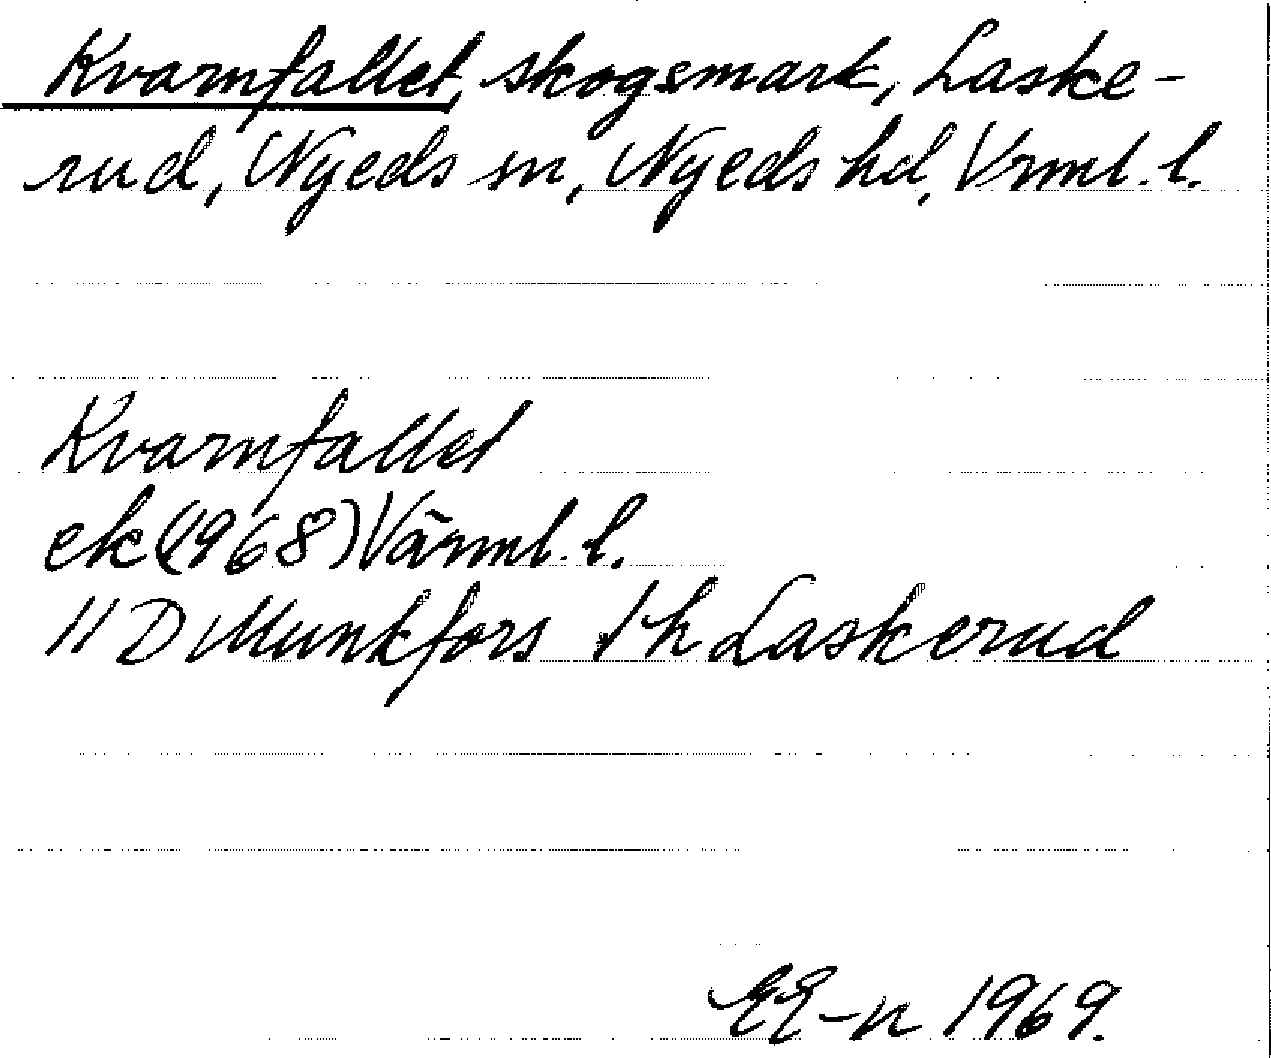 Kvarnfallet, skogsmark, Laske-
rud, Nyeds sn, Nyeds hd, Vrml. l.
Kvarnfallet
ek (1968) Värml. l.
11 D Munkfors 1 h Laskerud
EE-n 1969.